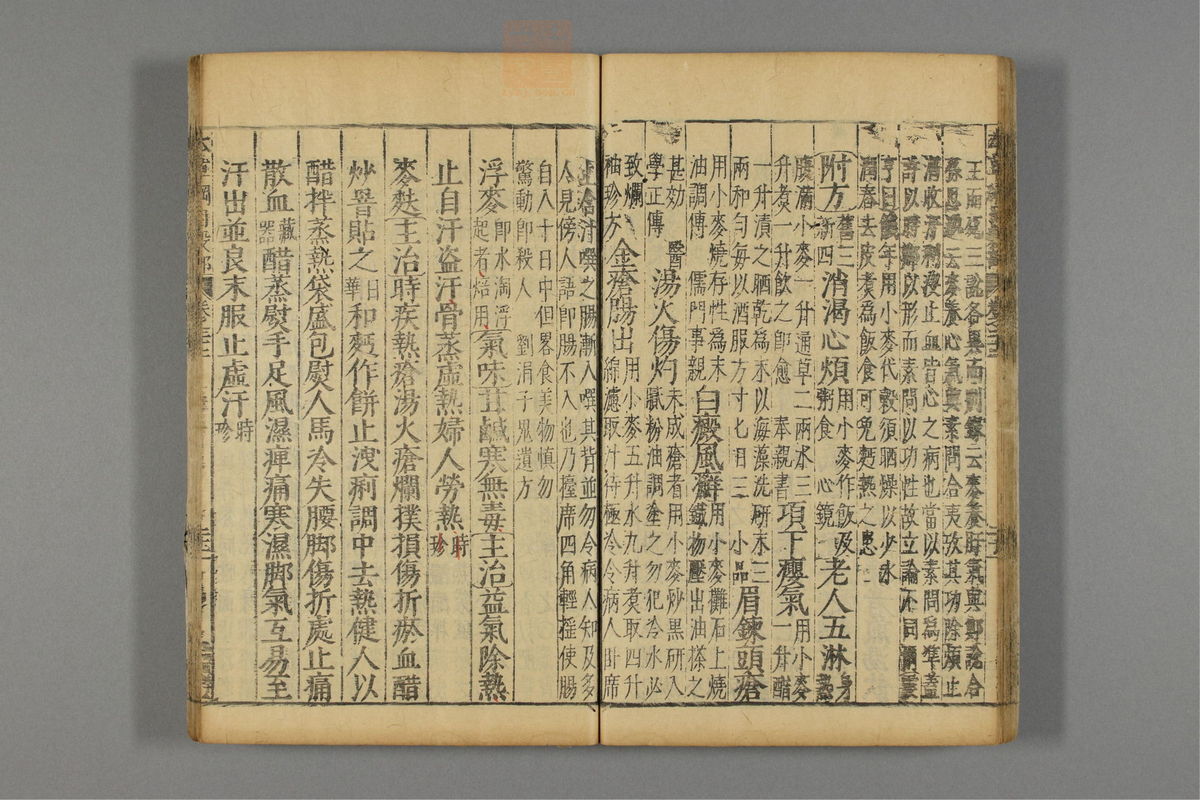 王而死三說各異而別錄云麥養肝氣與鄭說合
孫思邈云麥養心氣與素問合夷攷其功除煩止
渴收汗利溲止血皆心之病也當以素問為準蓋
許以時鄭以形而素問以功性故立論不同爾震
亨曰饑年用小麥代穀須晒燥以少水
潤舂去皮煮為飯食可免麪熱之患
附方舊三新四消渴心煩用小麥作飯及粥食 心鏡老人五淋身熱
腹滿小麥一升通草二兩水三
升煮一升飲之即愈 奉親書項下癭氣用小麥一升醋
一升漬之晒乾為末以海藻洗研末三
兩和勻每以酒服方寸匕日三 小品眉鍊頭瘡
用小麥燒存性為末
油調傅 儒門事親白癜風癬用小麥攤石上燒鐵物壓出油搽之
甚効 醫
學正傳湯火傷灼未成瘡者用小麥炒黑研入膩粉油調塗之勿犯冷水必
致爛
袖珍方金瘡腸出用小麥五升水九升煮取四升綿濾取汁待極冷令病人臥席
上含汁噀之腸漸入噀其背並勿令病人知及多
人見傍人語即腸不入也乃擡席四角輕搖使腸
自入十日中但畧食美物慎勿
驚動即殺人 劉涓子鬼遺方
浮麥即水淘浮起者焙用氣味甘鹹寒無毒主治益氣除熱
止自汗盜汗骨蒸虛熱婦人勞熱時珍
麥麩主治時疾熱瘡湯火瘡爛撲損傷折瘀血醋
炒罯貼之日華和麪作餅止洩痢調中去熱健人以
醋拌蒸熱袋盛包熨人馬冷失腰脚傷折處止痛
散血藏器醋蒸熨手足風濕痺痛寒濕脚氣互易至
汗出並良末服止虛汗時珍